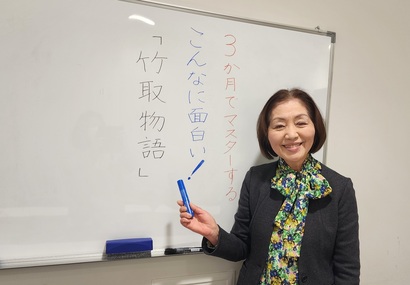 3か月でマスターする
こんなに面白い!
「竹取物語」